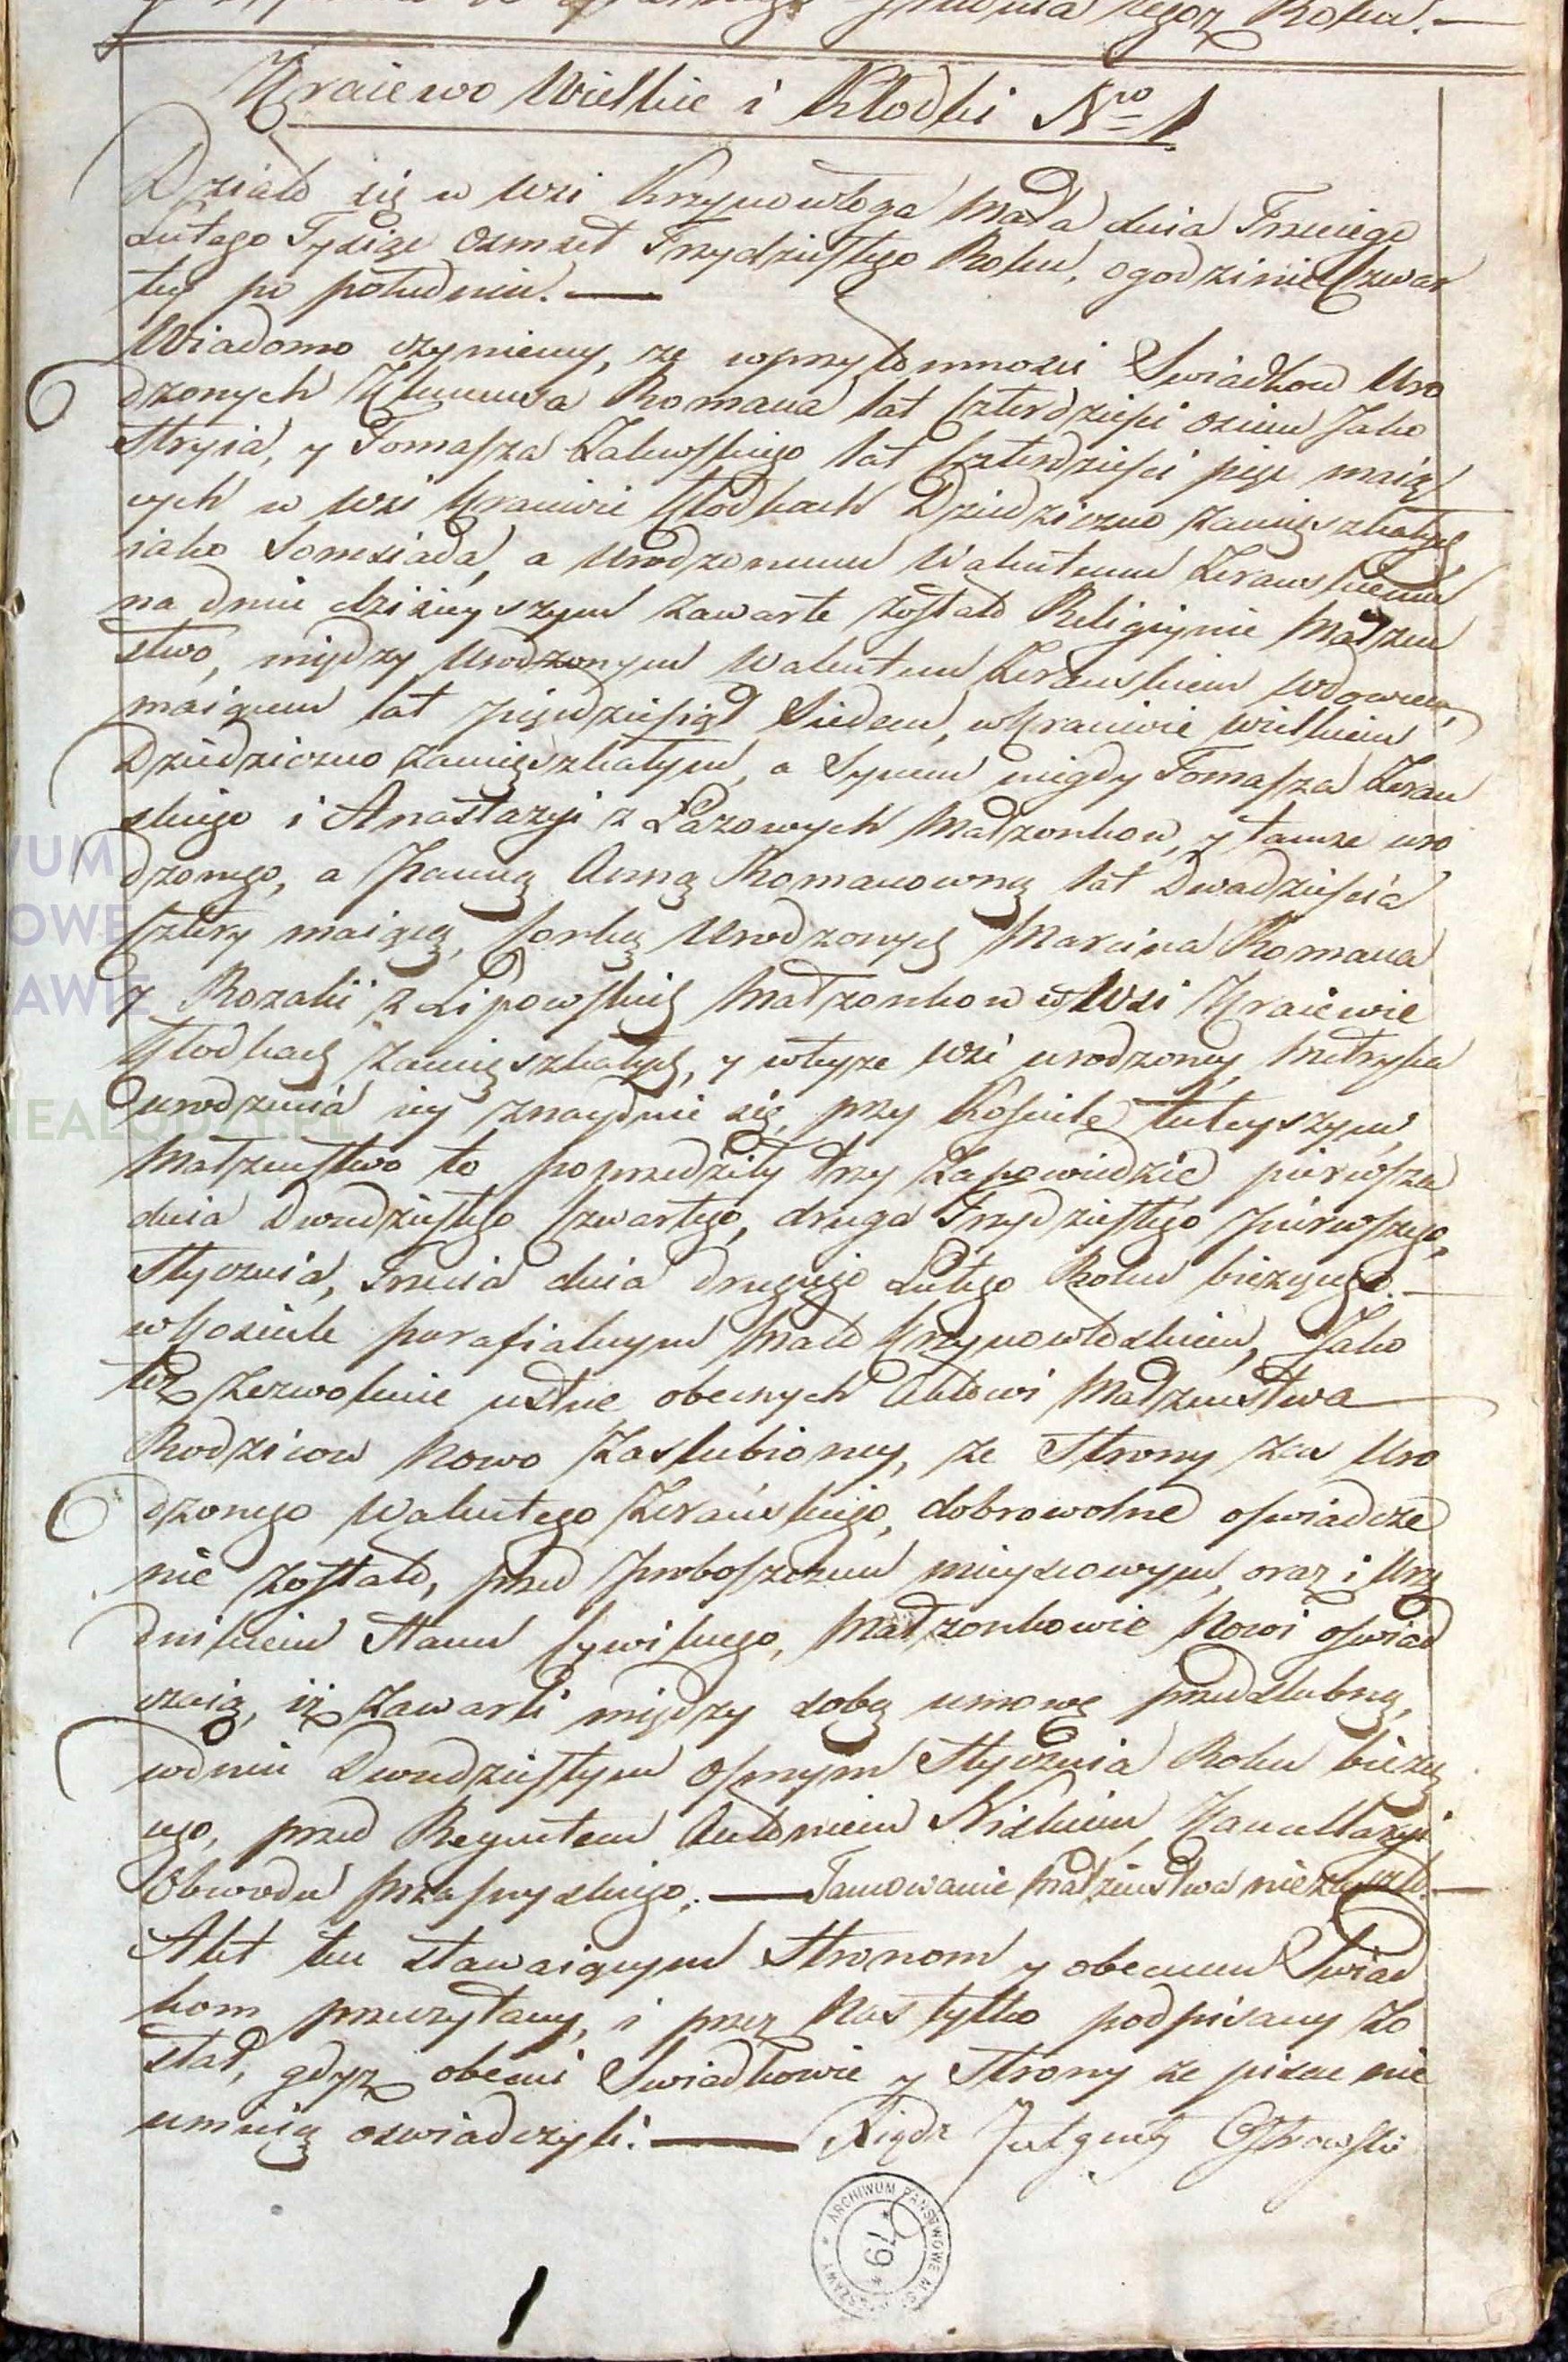 tegoż Roku.
Kraiewo Wielkie i Kłodki Nro 1
Działo się w Wsi Krzynowłoga Mała dnia Trzeciego
Lutego Tysiąc Osmset Trzydziestego Roku, o godzinie Czwar
tey po południu.
Wiadomo czyniemy, że w przytomności Swiadków Uro
dzonych Romana lat Czterdzieści osim Jako
Stryia, y Tomasza Zalewskiego lat Czterdzieści pięć maią
cych w Wsi Kraiewie Kłodkach Dziedziczno zamięszkałych
iako Somsiada, a Urodzonemu Walentemu Zerańskiemu
na dniu dzisieyszym zawarte zostało Religiynie Małżeń
stwo, między Urodzonym Walentem Zerańskiem wdowcem,
maiącem lat pięćdziesiąt Siedem, w Kraiewie Wielkiem
Dziedziczno zamięszkałym, a Synem między Tomasza Zerań
skiego i Anastazyi z Łazowych Małżonków, y tamże uro
dzonego, a Panną Anną Romanowną lat Dwadzieścia
Cztery maiącą, Corką Urodzonych Marcina Romana
y Rozalii z Lipowskich Małżonków w Wsi Kraiewie
Kłodkach zamięszkałych, y w teyże wsi urodzoney, Metryka
urodzenia iey znayduie się, przy Kościele tuteyszym,
Małżeństwo to poprzedziły trzy Zapowiedzie pierwsza
dnia Dwudziestego Czwartego, druga Trzydziestego pierwszego,
Stycznia, Trzecia dnia drugiego Lutego Roku bieżącego.
w Kościele parafialnym Mało Krzynowłoskiem, Jako
też zezwolenie ustne obecnych Aktowi Małżeństwa
Rodziców Nowo Zaslubioney, ze Strony zaś Uro
dzonego Walentego Zerańskiego, dobrowolne oswiadcze
nie zostało, przed Proboszczem mieyscowym, oraz i Urzę
dnikiem Stanu Cywilnego, Małżonkowie Nowi oswiad
czaią, iż zawarli między sobą umowę przedslubną,
w dniu Dwudziestym Osmym Stycznia Roku bieżą
cego, przed Regentem Antoniem Niskiem, Kancellaryi
Obwodu Przasnyskiego. Tamowanie Małżeństwa nie zaszło.
Akt ten stawaiącym Stronom y obecnem Swiad
kom przeczytany, i przez Nas tylko podpisany zo
stał, gdyż obecni Swiadkowie y Strony że pisać nie
umieią oswiadczyli. Xiądz Ostrowski
ARCHIWUM PAŃSTWOWE M.ST. WARSZAWY
79
1